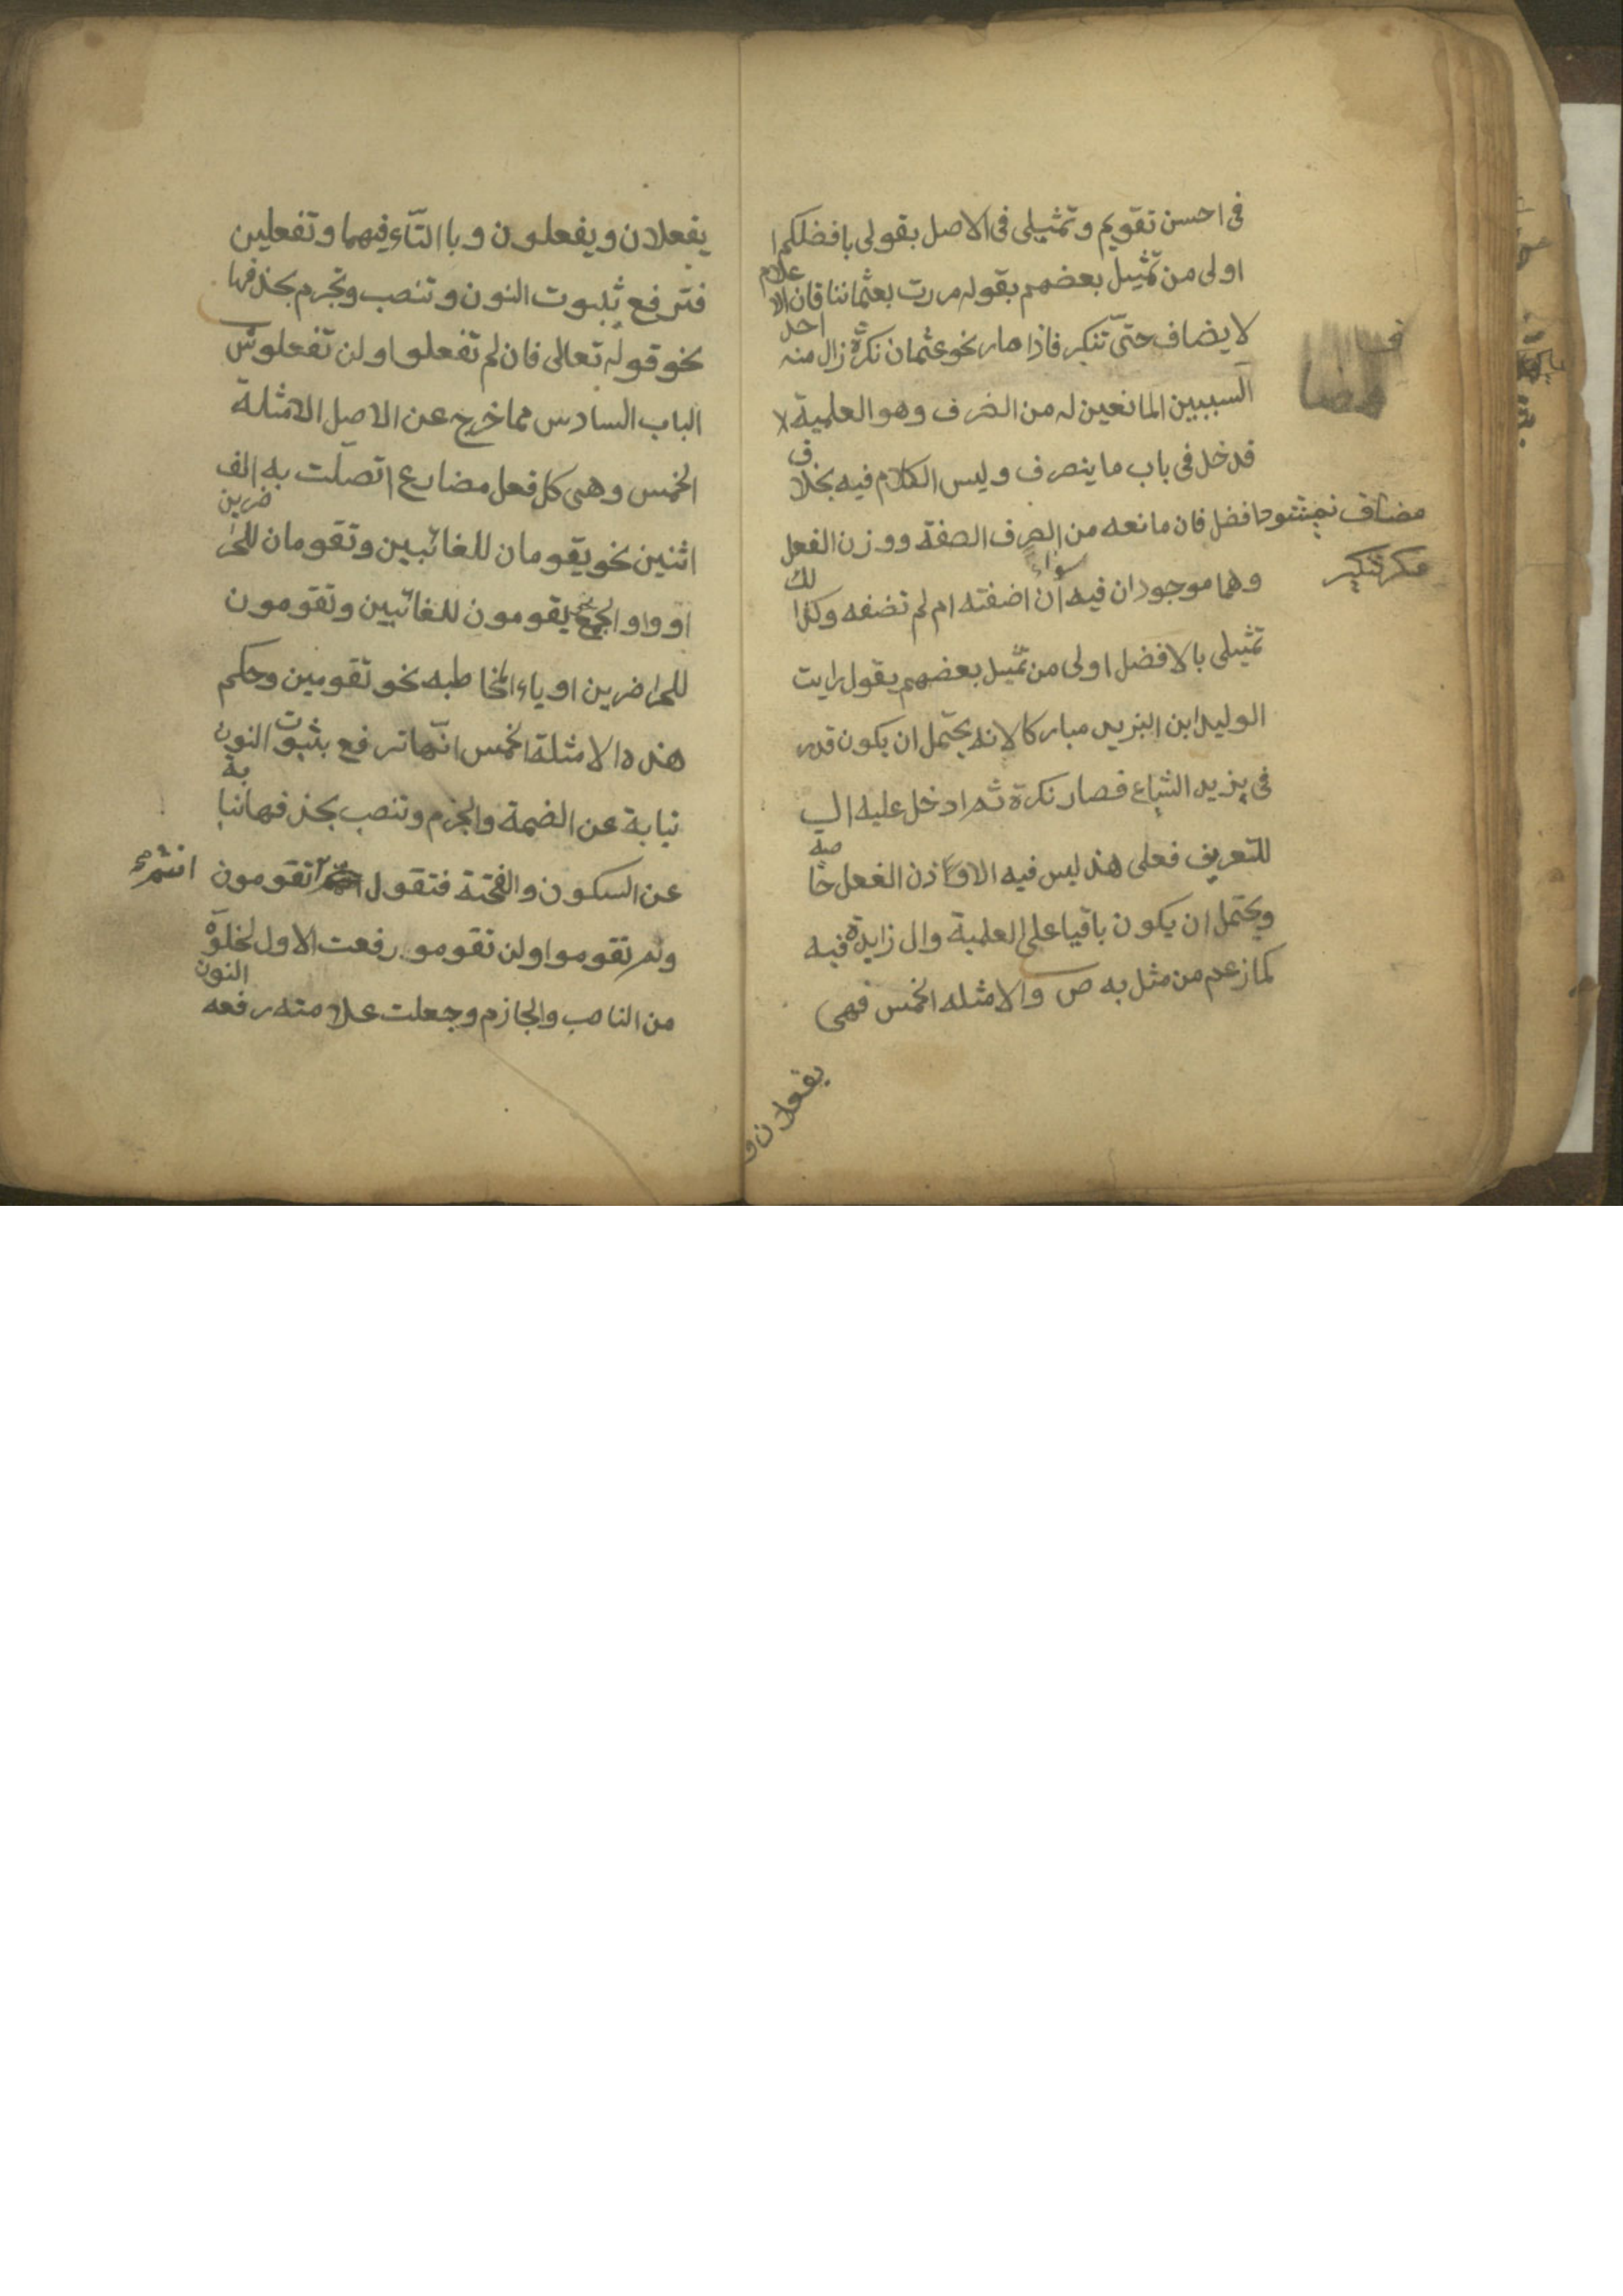 في احسن تقويم وتمثيلي في الاصل بقولي بافضلكم
اولى من تمثيل بعضهم بقوله مررت بعثماننا فان الا
علام
لا يضاف حتى تنكر فاذا صار نحو عثمان نكرة زال منه
احد
السببين المانعين له من الصرف وهو العلمية لا
فدخل في باب ما ينصرف وليس الكلام فيه بخلا
ف
افضل فان مانعه من الصرف الصفة ووزن الفعل
مضاف
وهما موجودان فيه ان اضفته ام لم تضفه وكذا
سواء
لك
تمثيلي بالافضل اولى من تمثيل بعضهم بقول رايت
الوليد ابن اليزيد مباركا لانه يحتمل ان يكون قدر
في يزيد الشياع فصار نكرة ثم ادخل عليه ال
للتعريف فعلى هذ ليس فيه الا وزن الفعل خا
صة
ويحتمل ان يكون باقيا على العلمية وال زايدة فيه
كما زعم من مثل به ص والامثله الخمس فهي
يفعلان و
يفعلان ويفعلون وباالتاء فيهما وتفعلين
فترفع بثبوت النون وتنصب وتجزم بحذفها
نحو قوله تعالى فان لم تفعلوا ولن تفعلوا ش
الباب السادس مما خرج عن الاصل الامثلة
الخمس وهي كل فعل مضارع اتصلت به الف
اثنين نحو يقومان للغائبين وتقومان للحا
ضرين
او واو الجمع نحو يقومون للغائبين وتقومون
للحاضرين او ياء المخاطبه نحو تقومين وحكم
هذه الامثلة الخمس انها ترفع بثبوت النون
نيابة عن الضمة والجزم وتنصب بحذفها نيا
بة
عن السكون والفتحة فتقول تقومون
انتم
ولم تقوموا ولن تقومو رفعت الاول لخلوه
من الناصب والجازم وجعلت علامته رفعه
النون